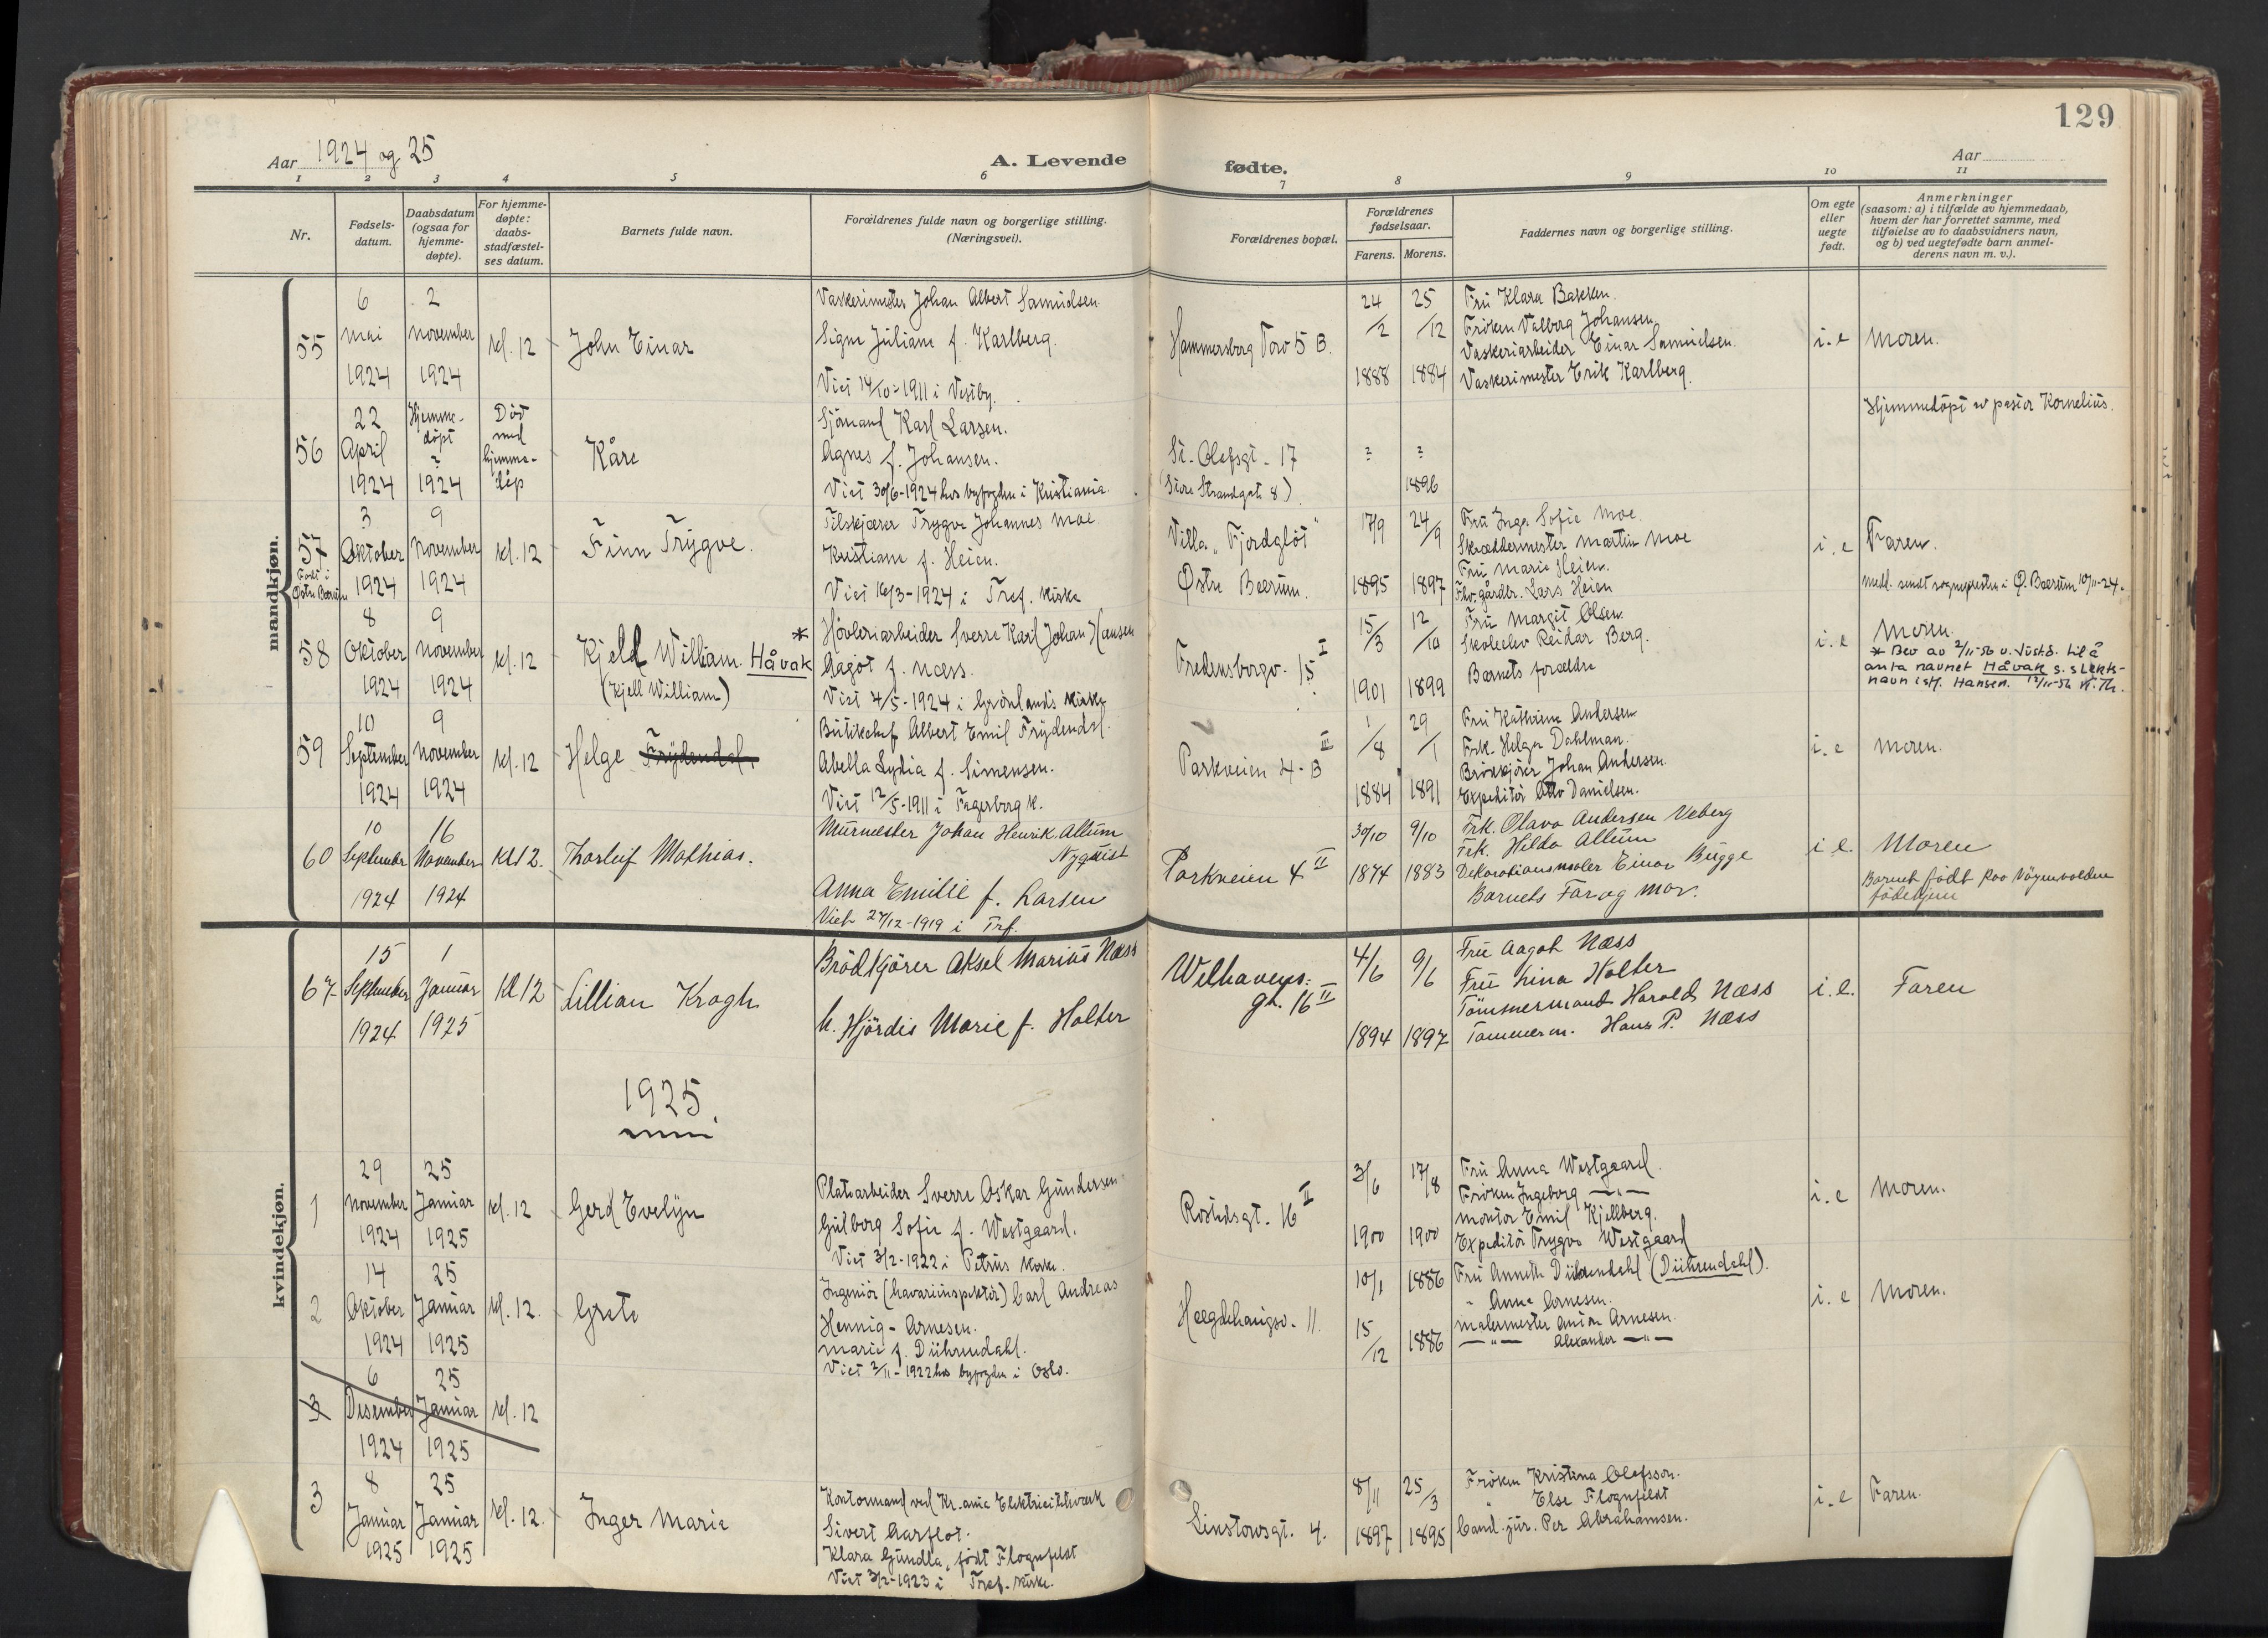 129
Aar 1924 og 25
A. Levende fødte.
Aar
1 2 3 4 5 6 7 8 9 10 11
Nr.
Fødsels-datum.
Daabsdatum (ogsaa for hjemme-døpte).
For hjemme-døpte: daabs-stadfæstel-ses datum.
Barnets fulde navn.
Forældrenes fulde navn og borgerlige stilling. (Næringsvei).
Forældrenes bopæl.
Forældrenes fødselsaar.
Farens. Morens.
Faddernes navn og borgerlige stilling.
Om egte eller uegte født.
Anmerkninger
(saasom: a) i tilfælde av hjemmedaab,
hvem der har forrettet samme, med
tilføielse av to daabsvidners navn,
og b) ved uegtefødte barn anmel-
derens navn m. v.).
mandkjøn.
55
6 Mai 1924
2 November 1924
kl. 12
John Einar
Vaskerimester Johan Albert Samuelsen.
Signe Juliane f. Karlberg.
Viet 14/10-1911 i Vestby.
Hammersborg Torv 5 B.
24/2 1888
25/12 1884
Fru Klara Bakken.
Frøken Valborg Johansen
Vaskeriarbeider Einar Samuelsen.
Vaskerimester Erik Karlberg.
i. e
Moren.
56
22 April 1924
Hjemme-døpt ? 1924
Død med hjemme-dåp
Kåre
Sjømand Karl Larsen.
Agnes f. Johansen.
Viet 30/6-1924 hos byfogden i Kristiania.
St. Olafsgt. 17
(Store Strandgate 8)
?
? 1896
Hjemmedøpt av pastor Kornelius.
57
Født i Østre Bærum
3 Oktober 1924
9 November 1924
kl. 12
Finn Trygve.
Tilskjærer Trygve Johannes Moe
Kristiane f. Heien.
Viet 16/3-1924 i Tref. kirke
Villa "Fjordgløt"
Østre Bærum.
17/9 1895
24/9 1897
Fru Inga Sofie Moe.
Skræddermester Martin Moe
Fru Marie Heien.
Fhv. gårdbr. Lars Heien
i. e
Faren.
Medl. sendt sognepresten i Ø. Bærum 10/11-24.
58
8 Oktober 1924
9 November 1924
kl. 12
Kjeld William. Håvak *
(Kjell William)
Høvleriarbeider Sverre Karl Johan Hansen
Aagot f. Næss.
Viet 4/5-1924 i Grønlands kirke
Fredensborgv. 15 I
15/3 1901
12/10 1899
Fru Margit Olsen.
Skoleelev Reidar Berg.
Barnets forældre
i. e
Moren.
* Bev av 2/11-56 v. Just.d. til å
anta navnet Håvak s. slekts-
navn istf. Hansen. 12/11-56 K.Th.
59
10 September 1924
9 November 1924
kl. 12
Helge Frydendal.
Butikchef Albert Emil Frydendal.
Abella Lydia f. Simensen.
Viet 12/5-1911 i Fagerborg k.
Parkveien 4 - B III
1/8 1884
29/1 1891
Fru Kathrine Andersen
Frk. Helga Dahlman.
Brødkjører Johan Andersen.
Expeditør Otto Danielsen.
i. e
Moren.
60
10 September 1924
16 November 1924
Kl 12.
Thorleif Mathias.
Murmester Johan Henrik Allum
Nyquist
Anna Emilie f. Larsen
Viet 27/12-1919 i Trf.
Parkveien 4 II
30/10 1874
9/10 1883
Frk. Olava Andersen Veberg
Frk. Hilda Allum
Dekorationsmaler Einar Bugge
Barnets Far og Mor.
i e.
Moren
Barnet født paa Vøyenvolden
fødehjem
kvindekjøn.
67
15 September 1924
1 Januar 1925
Kl 12
Lillian Krogh
Brødkjører Aksel Marius Næss
h. Hjördis Marie f. Holter
Welhavens: gt. 16 II
4/6 1894
9/6 1897
Fru Aagot Næss
Fru Lina Holter
Tömmermand Harald Næss
Tømmerm. Hans P. Næss
i. e.
Faren
1925.
1
29 November 1924
25 Januar 1925
kl. 12
Gerd Evelyn
Platearbeider Sverre Oskar Gundersen
Gulborg Sofie f. Westgaard.
Viet 3/2-1922 i Petrus kirke.
Rostedsgt. 16 II
3/6 1900
17/8 1900
Fru Anna Westgaard.
Frøken Ingeborg — " —
Montør Emil Kjellberg.
Expeditør Trygve Westgaard
i. e
Moren.
2
14 Oktober 1924
25 Januar 1925
kl. 12.
Grete
Ingeniør (havariinspektør) Carl Andreas
Hennig - Arnesen.
Marie f. Dührendahl.
Viet 2/11-1922 hos byfogden i Oslo.
Hægdehaugsv. 11.
10/1 1886
15/12 1886
Fru Annette Dührendahl (Dührendahl).
" Anna Arnesen.
Malermester Anton Arnesen.
— " — Alexander — " —
i. e
Moren.
3
6 Desember 1924
25 Januar 1925
kl. 12
3
8 Januar 1925
25 Januar 1925
kl. 12.
Inger Marie
Kontormand ved Kr.ania Elektricitetsverk
Sivert Aarflot.
Klara Gundla, født Flognfeldt
Viet 3/2-1923 i Tref. kirke.
Linstowsgt. 4.
8/11 1897
25/3 1895
Frøken Kristina Olafsson.
" Else Flognfeldt
Cand. jur. Per Abrahamsen.
i. e
Faren.